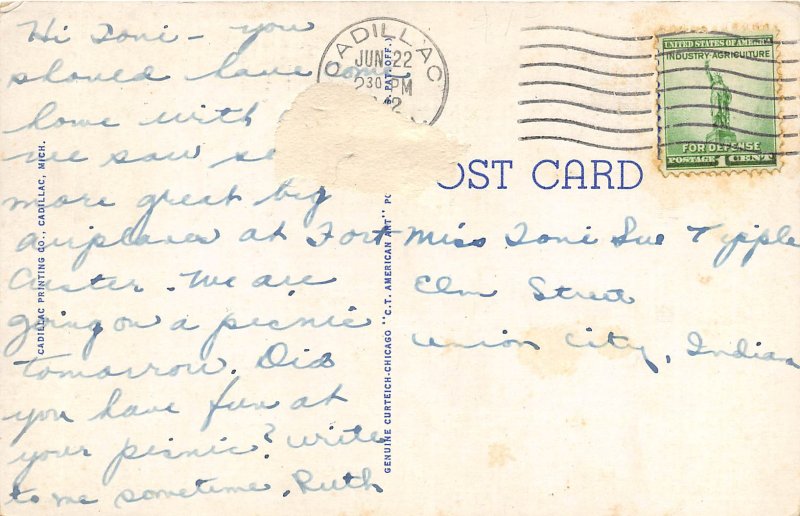 Hi Toni - you
should have come
home with
we saw
more great big
airplanes at Fort
Custer. We are
going on a picnic
tomorrow. Did
you have fun at
your picnic? write
to me sometime. Ruth
CADILLAC PRINTING CO., CADILLAC, MICH.
GENUINE CURTEICH-CHICAGO "C.T. AMERICAN ART"
S. PAT. OFF.
CADILLAC
JUN 22
2 30 PM
OST CARD
UNITED STATES OF AMERICA
INDUSTRY-AGRICULTURE
FOR DEFENSE
POSTAGE 1 CENT
Miss Toni Sue Tipple
Elm Street
Union City, Indiana